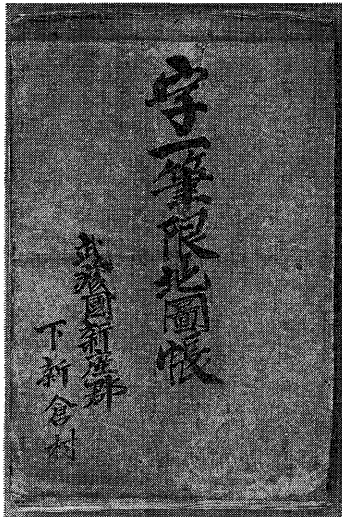 字一筆限地圖帳
武蔵國新座郡
下新倉村